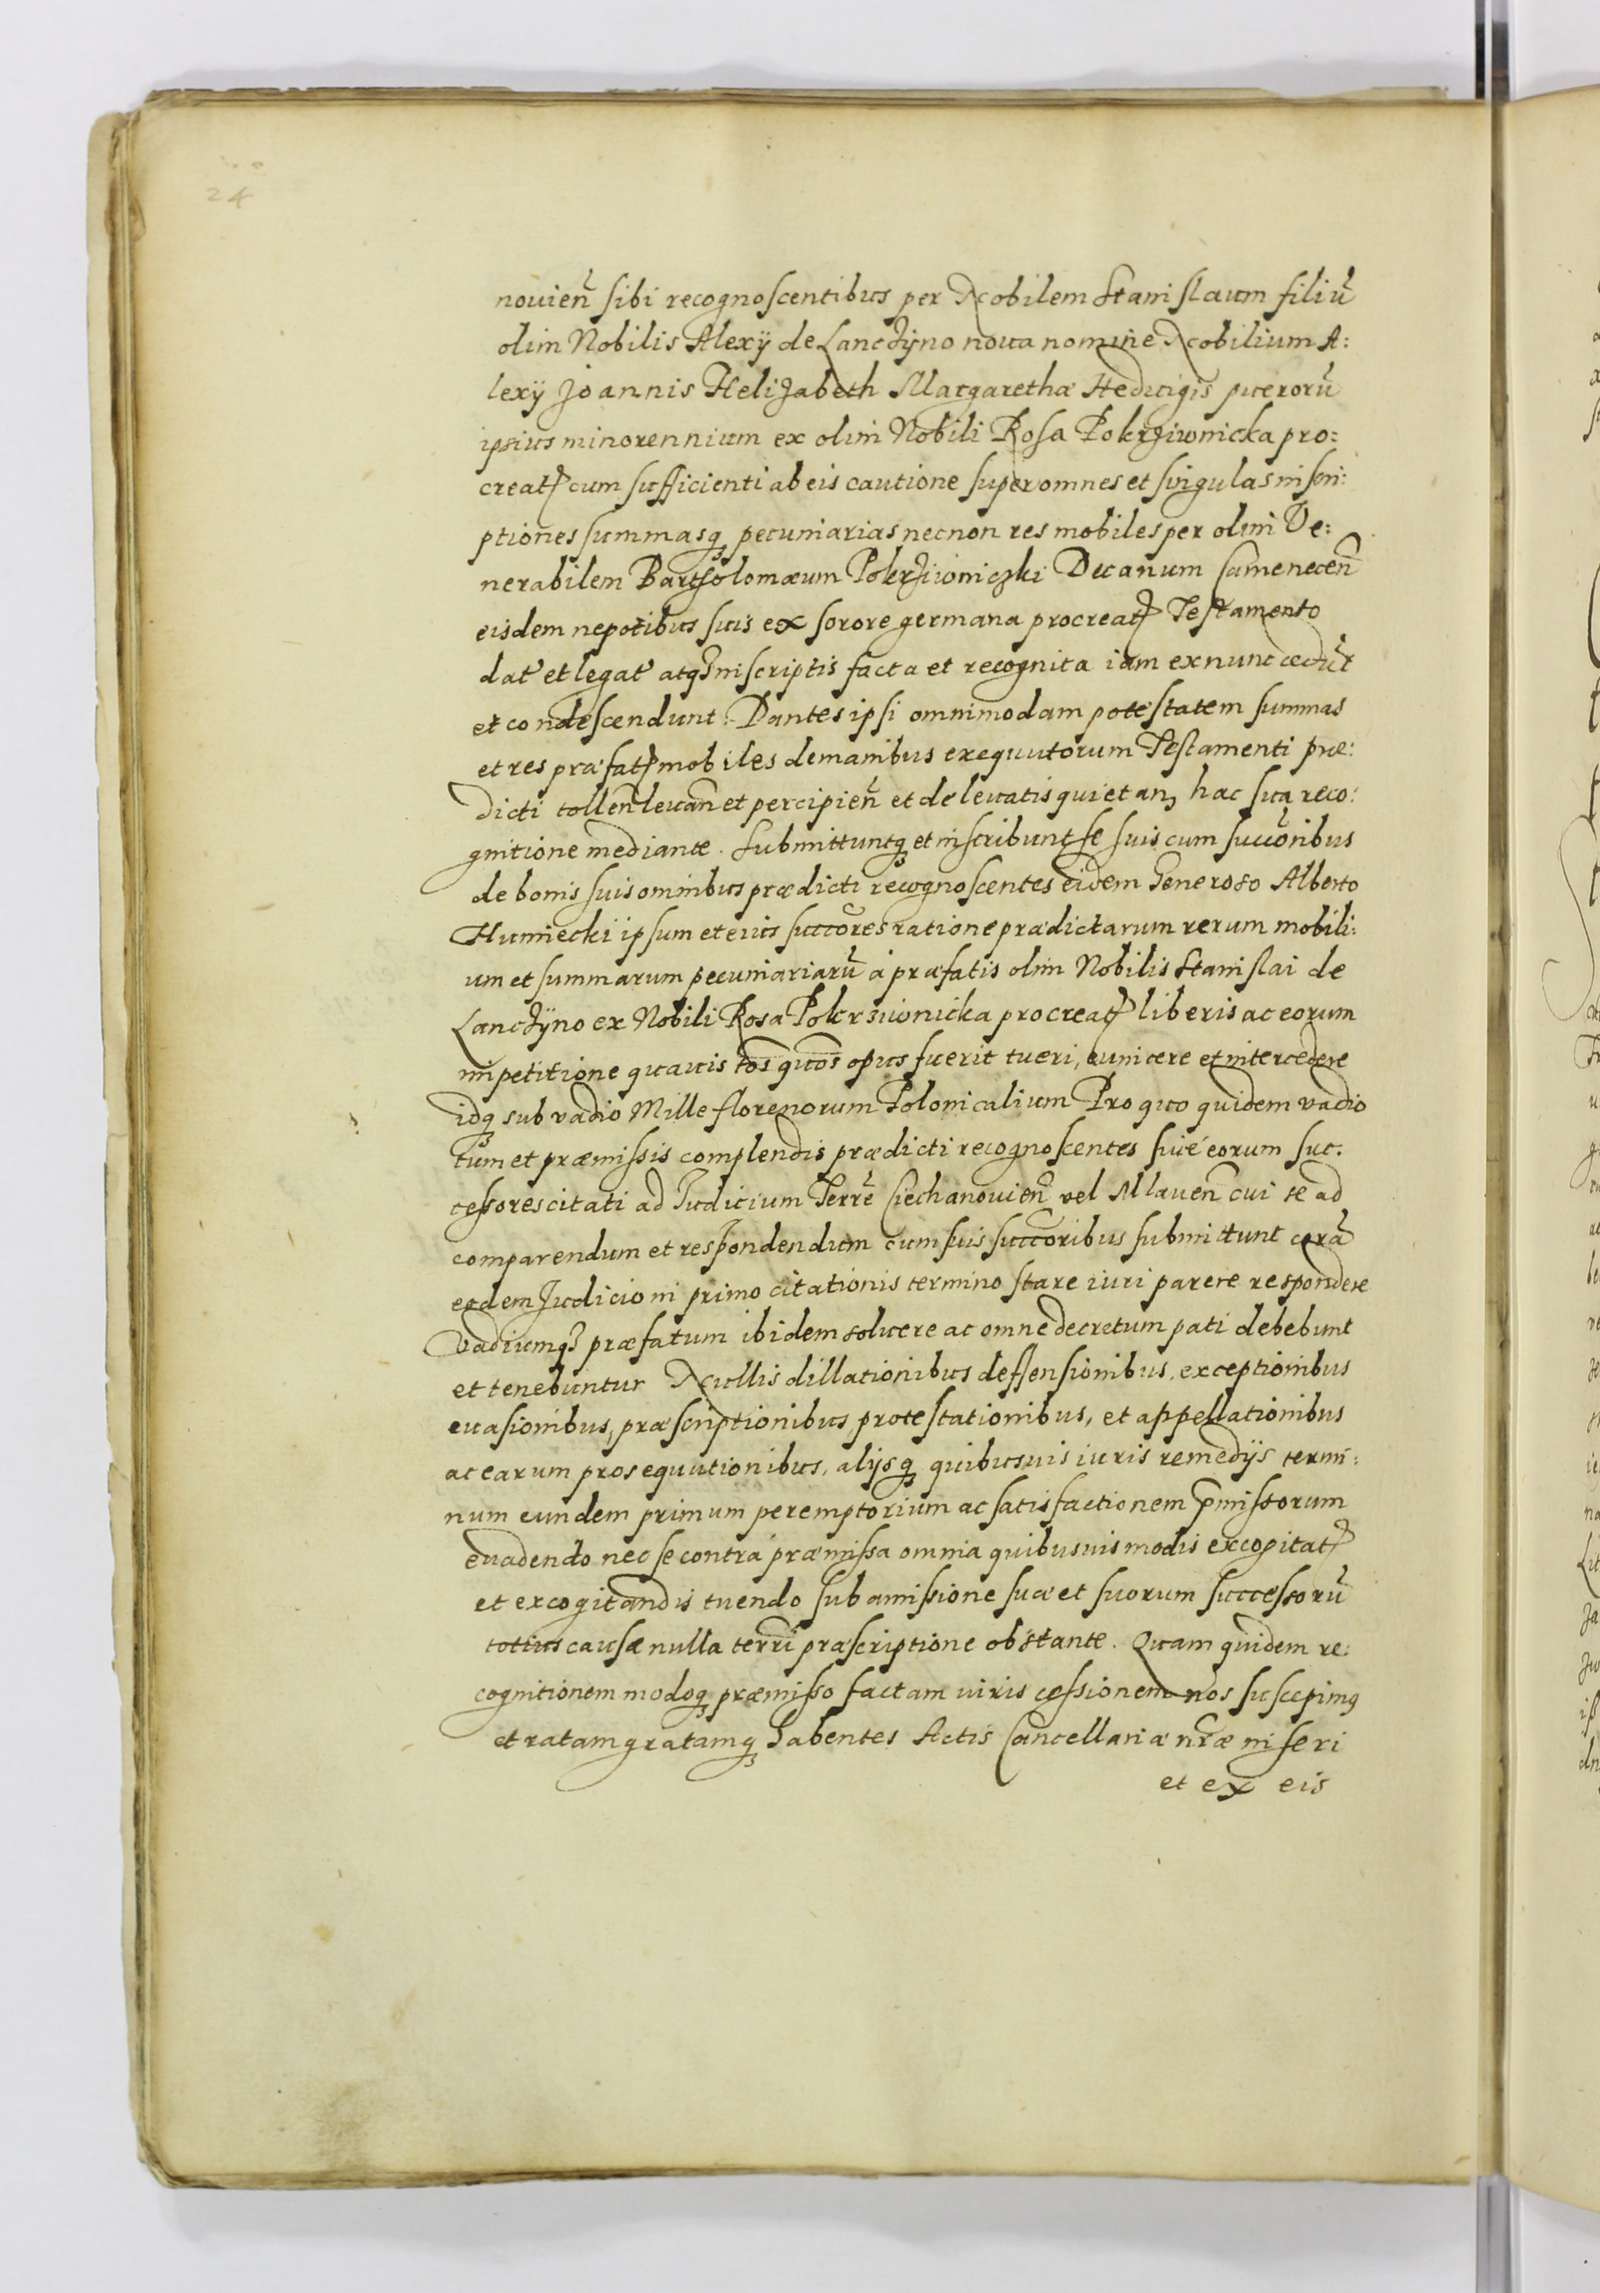 24
novien̄ sibi recognoscentibus per Nobilem Stanislaum filiū
olim Nobilis Alexÿ de Lanczÿno nova nomine Nobilium A:
lexÿ Joannis Helizabeth Margarethæ Hedvigis pueroru̅
ipsius minorennium ex olim Nobili Rosa Pokrziwnicka pro:
creatꝭ cum sufficienti ab eis cautione super omnes et singulas inscri:
ptiones summasqꝫ pecuniarias necnon res mobiles per olim Ve:
nerabilem Bartholomæum Pokrziwniczki Decanum Camenecen̄
eisdem nepotibus suis ex sorore germana procreatꝭ Testamento
dat et legat atqꝫ inscriptis facta et recognita iam ex nunc cedūt
et condescendunt. Dantes ipsi omnimodam potestatem summas
et res præfatꝭ mobiles de manibus exequutorum Testamenti præ:
dicti tollen̄ levan̄ et percipien̄ et de levatis quietanꝫ hac sua reco:
gnitione mediante. Submittuntqꝫ et inscribunt se suis cum succōribus
de bonis suis omnibus prædicti recognoscentes eidem Generoso Alberto
Humiecki ipsum et eius succōres ratione prædictarum rerum mobili:
um et summarum pecuniariarū à præfatis olim Nobilis Stanislai de
Lanczÿno ex Nobili Rosa Pokrziwnicka procreatꝭ liberis ac eorum
impetitione quavis tōs quōs opus fuerit tueri, evincere et intercedere
idqꝫ sub vadio Mille florenorum Polonicalium Pro quo quidem vadio
tum et præmissis complendis prædicti recognoscentes sive eorum suc:
cessores citati ad Judicium Terrē Ciechanovien̄ vel Mlaven̄ cui se ad
comparendum et respondendum cum suis succōribus submittunt corā
eodem Judicio in primo citationis termino stare iuri parere respondere
Vadiumqꝫ præfatum ibidem solvere ac omne decretum pati debebunt
et tenebuntur Nullis dillationibus deffensionibus, exceptionibus
evasionibus, præscriptionibus protestationibus, et appellationibus
ac earum prosequutionibus, alijsqꝫ quibusvis iuris remedijs termi:
num eundem primum peremptorium ac satisfactionem p̄missorum
evadendo nec se contra præmissa omnia quibusvis modis excogitatꝭ
et excogitandis tuendo sub amissione suæ et suorum successorū
totius causæ nulla terrī præscriptione obstante. Quam quidem re:
cognitionem modoqꝫ præmisso factam iuris cessionem nos suscepimꝯ
et ratam gratamqꝫ habentes Actis Cancellariæ nr̄æ inseri
et ex eis